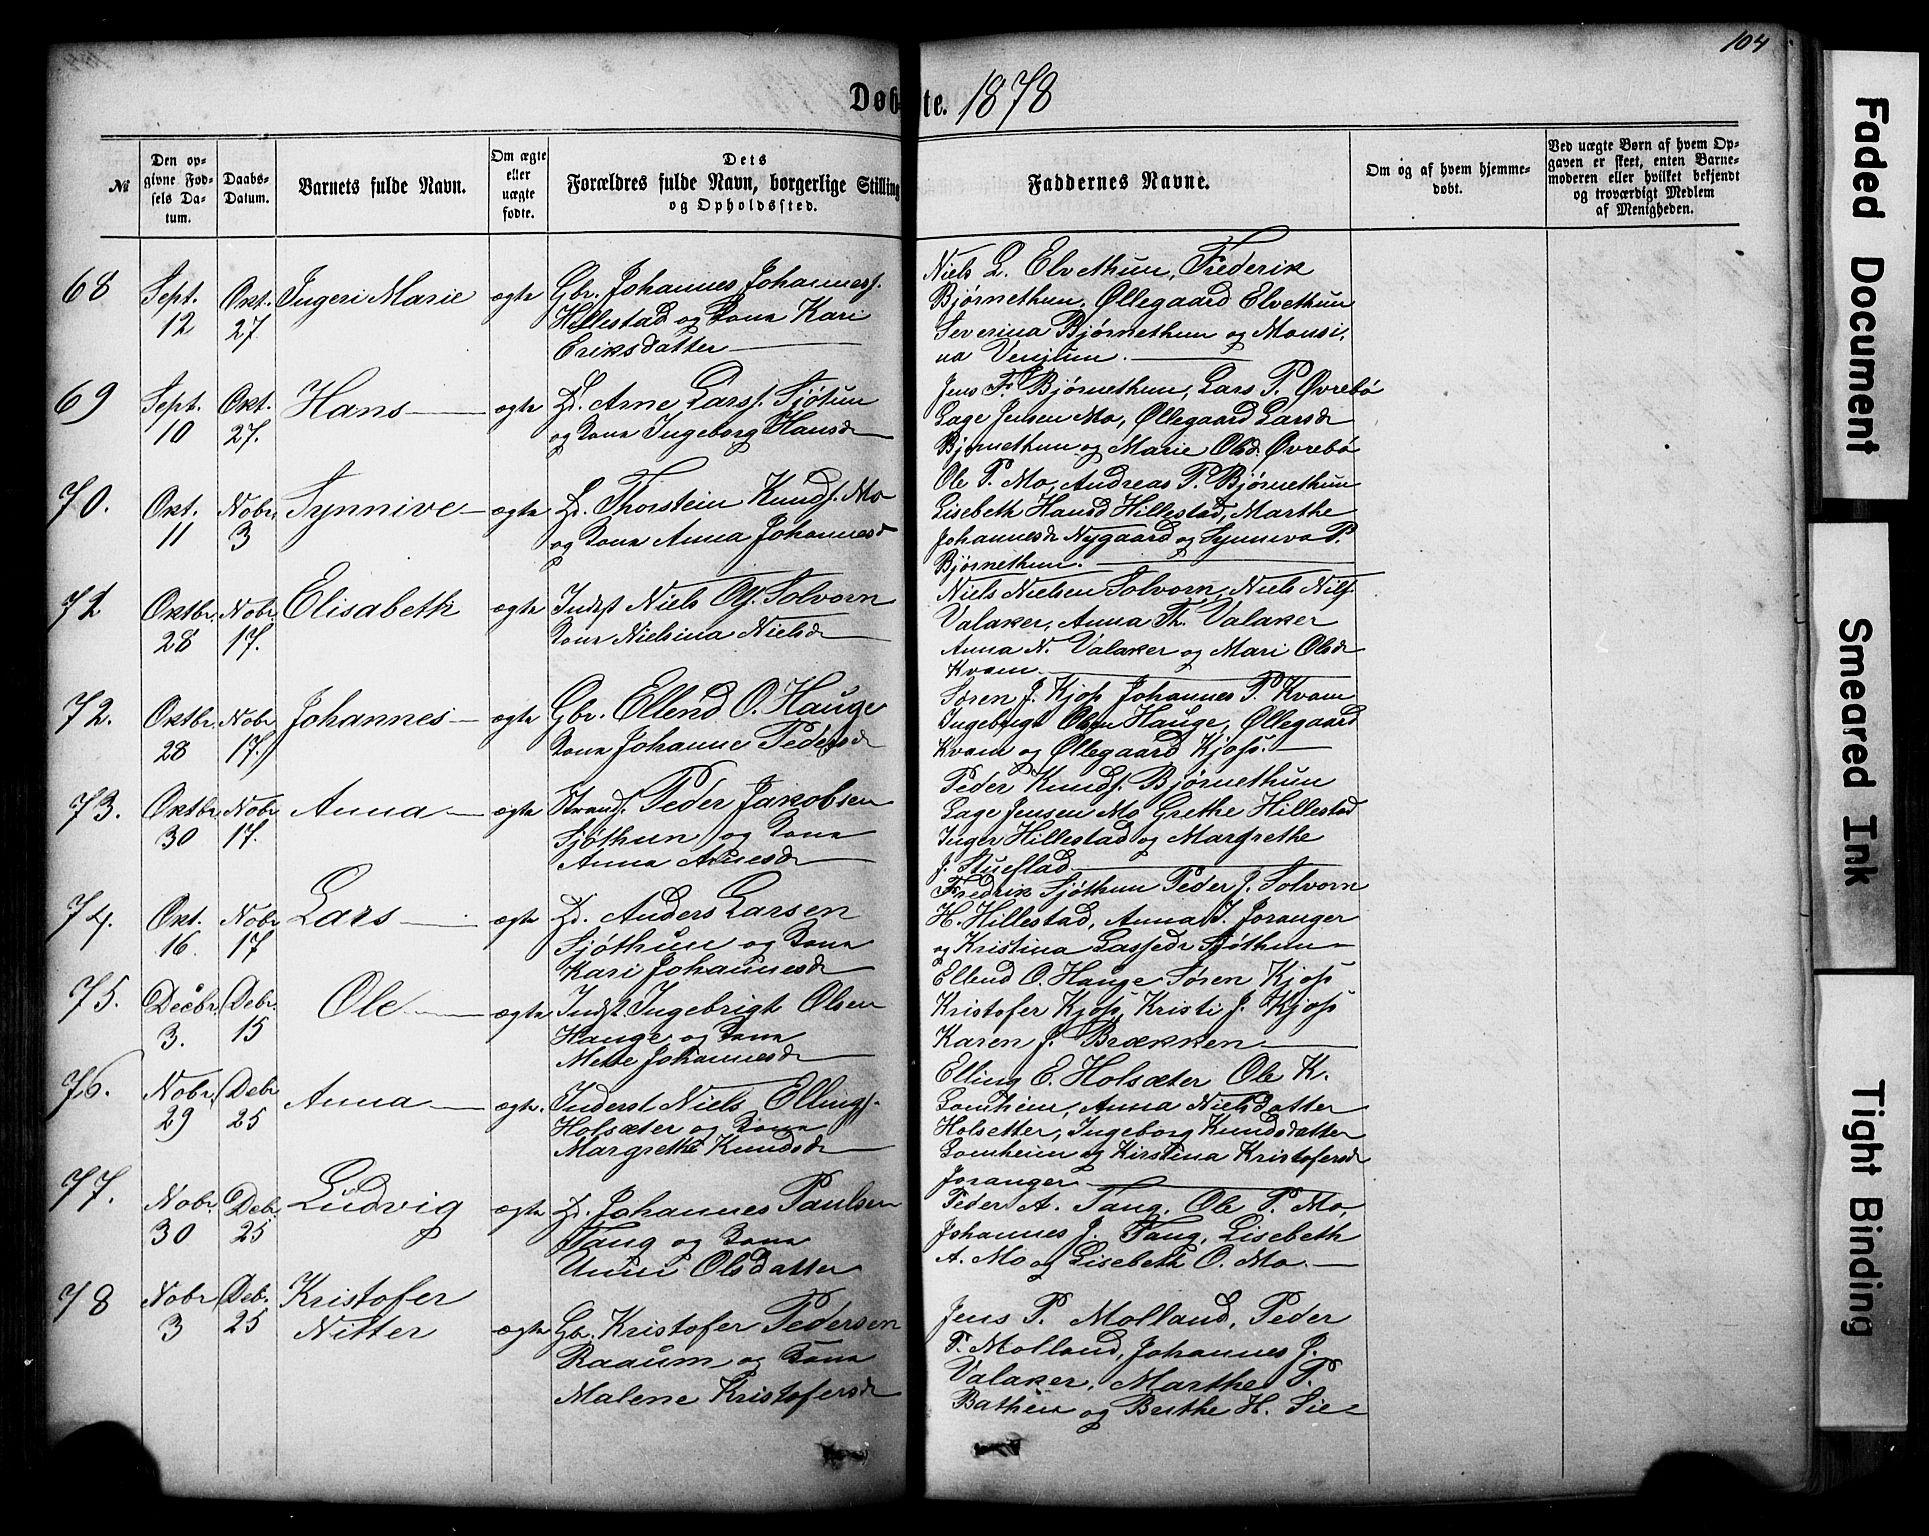 104
Døbte. 1878
№
Den opgivne Fødsels Datum.
Daabs-Datum.
Barnets fulde Navn.
Om ægte eller uægte fødte.
Dets Forældres fulde Navn, borgerlige Stilling og Opholdssted.
Faddernes Navne.
Om og af hvem hjemmedøbt.
Ved uægte Børn af hvem Opgaven er skeet, enten Barnemoderen eller hvilket bekjendt og troværdigt Medlem af Menigheden.
68
Sept. 12
Okt. 27.
Ingeri Marie
ægte
Gbr. Johannes Johanness.
Hillestad og Kona Kari
Eriksdatter
Niels L. Elvethun, Frederik
Bjørnethun, Øllegaard Elvethun
Severina Bjørnethun og Monsi,
na Venjum.
69
Sept. 10
Okt. 27.
Hans
ægte
Ld. Arne Larss. Sjøtun
og Kona Ingeborg Hansdr
Jens F. Bjørnethun, Lars P. Øvrebø
Lage Jensen Mo, Øllegaard Larsdr
Bjørnethun og Marie Olsd. Øvrebø
70.
Okt. 11
Nobr. 3
Synnive
ægte
Ld. Thorstein Knuds. Mo
og Kona Anna Johannesdr
Ole P. Mo, Andreas P. Bjørnethun
Lisebeth Hansd Hillestad, Marthe
Johannesdr Nygaard og Synneva P.
Bjørnethun.
71
Oktbr. 28
Nobr. 17.
Elisabeth
ægte
Inderst Niels Ols. Solvorn
Kona Nielsina Nielsdr
Niels Nielsen Solvorn, Niels Nils.
Valaker, Anna Th. Valaker
Anna N. Valaker og Mari Olsdr
Kvam
72.
Oktbr. 28
Nobr. 17.
Johannes
ægte
Gbr. Ellend O. Hauge
Kona Johanne Pedersdr
Søren J. Kjos Johannes P. Kvam
Ingebrigt Olsen Hauge, Øllegaard
Kvam og Øllegaard Kjos.
73.
Oktbr. 30
Nobr. 17.
Anna
ægte
Strands. Peder Jakobsen
Sjøthun og Kona
Anna Arnesdr
Peder Knuds. Bjørnethun
Lage Jensen Mo Grethe Hillestad
Inger Hillestad og Margrethe
J. Stueflad
74.
Okt. 16.
Nobr. 17
Lars
ægte
Ld. Anders Larsen
Sjøthun og Kona
Kari Johannesdr
Fredrik Sjøthun Peder J. Solvorn
H. Hillestad, Anna J. Joranger
og Kristina Lassedr Sjøthun
75.
Decbr. 3.
Debr. 15
Ole
ægte
Indst Ingebrigt Olsen
Hauge og Kona
Mette Johannesdr
Ellend O. Hauge Søren Kjos
Kristofer Kjos, Kristi J. Kjos
Karen J. Brækken
76.
Nobr. 29
Debr 25
Anna
ægte.
Inderst Niels Ellings.
Holsæter og Kona
Margrethe Knudsdr
Elling E. Holsæter Ole K.
Lomheim, Anna Nielsdatter
Holsetter, Ingeborg Knudsdatter
Lomheim og Kirstina Kristofersdr
Joranger
77.
Nobr. 30
Debr. 25
Ludvig
ægte
Ld. Johannes Paulsen
Fang og Kona
Unni Olsdatter
Peder A. Fang, Ole P. Mo,
Johannes J. Fang, Lisebeth
A. Mo og Lisebeth O. Mo.
78
Nobr 3
Debr. 25
Kristofer
Nitter
ægte
Gbr. Kristofer Pedersen
Raaum og Kona
Malene Kristofersdr
Jens P. Molland, Peder
P. Molland, Johannes J.
Valaker, Marthe P.
Bathen og Berthe H. Sie-
Faded Document
Smeared Ink
Tight Binding